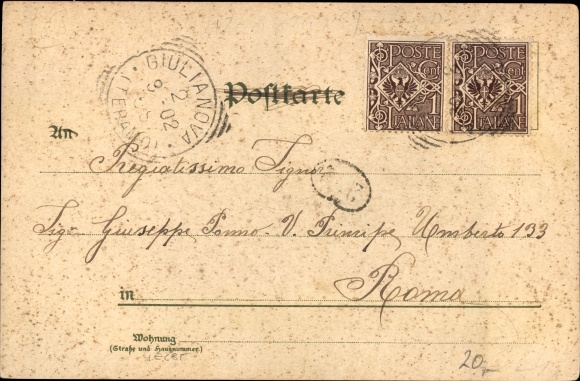 GIULIANOVA
(TERAMO)
2
02
POSTE
Cent 1
ITALIANE
POSTE
Cent 1
ITALIANE
Postkarte
An
Pregiatissimo Signor
Sigr Giuseppe Ponno- V. Principe Umberto 133
Roma
in
Wohnung
(Straße und Hausnummer)
20,-